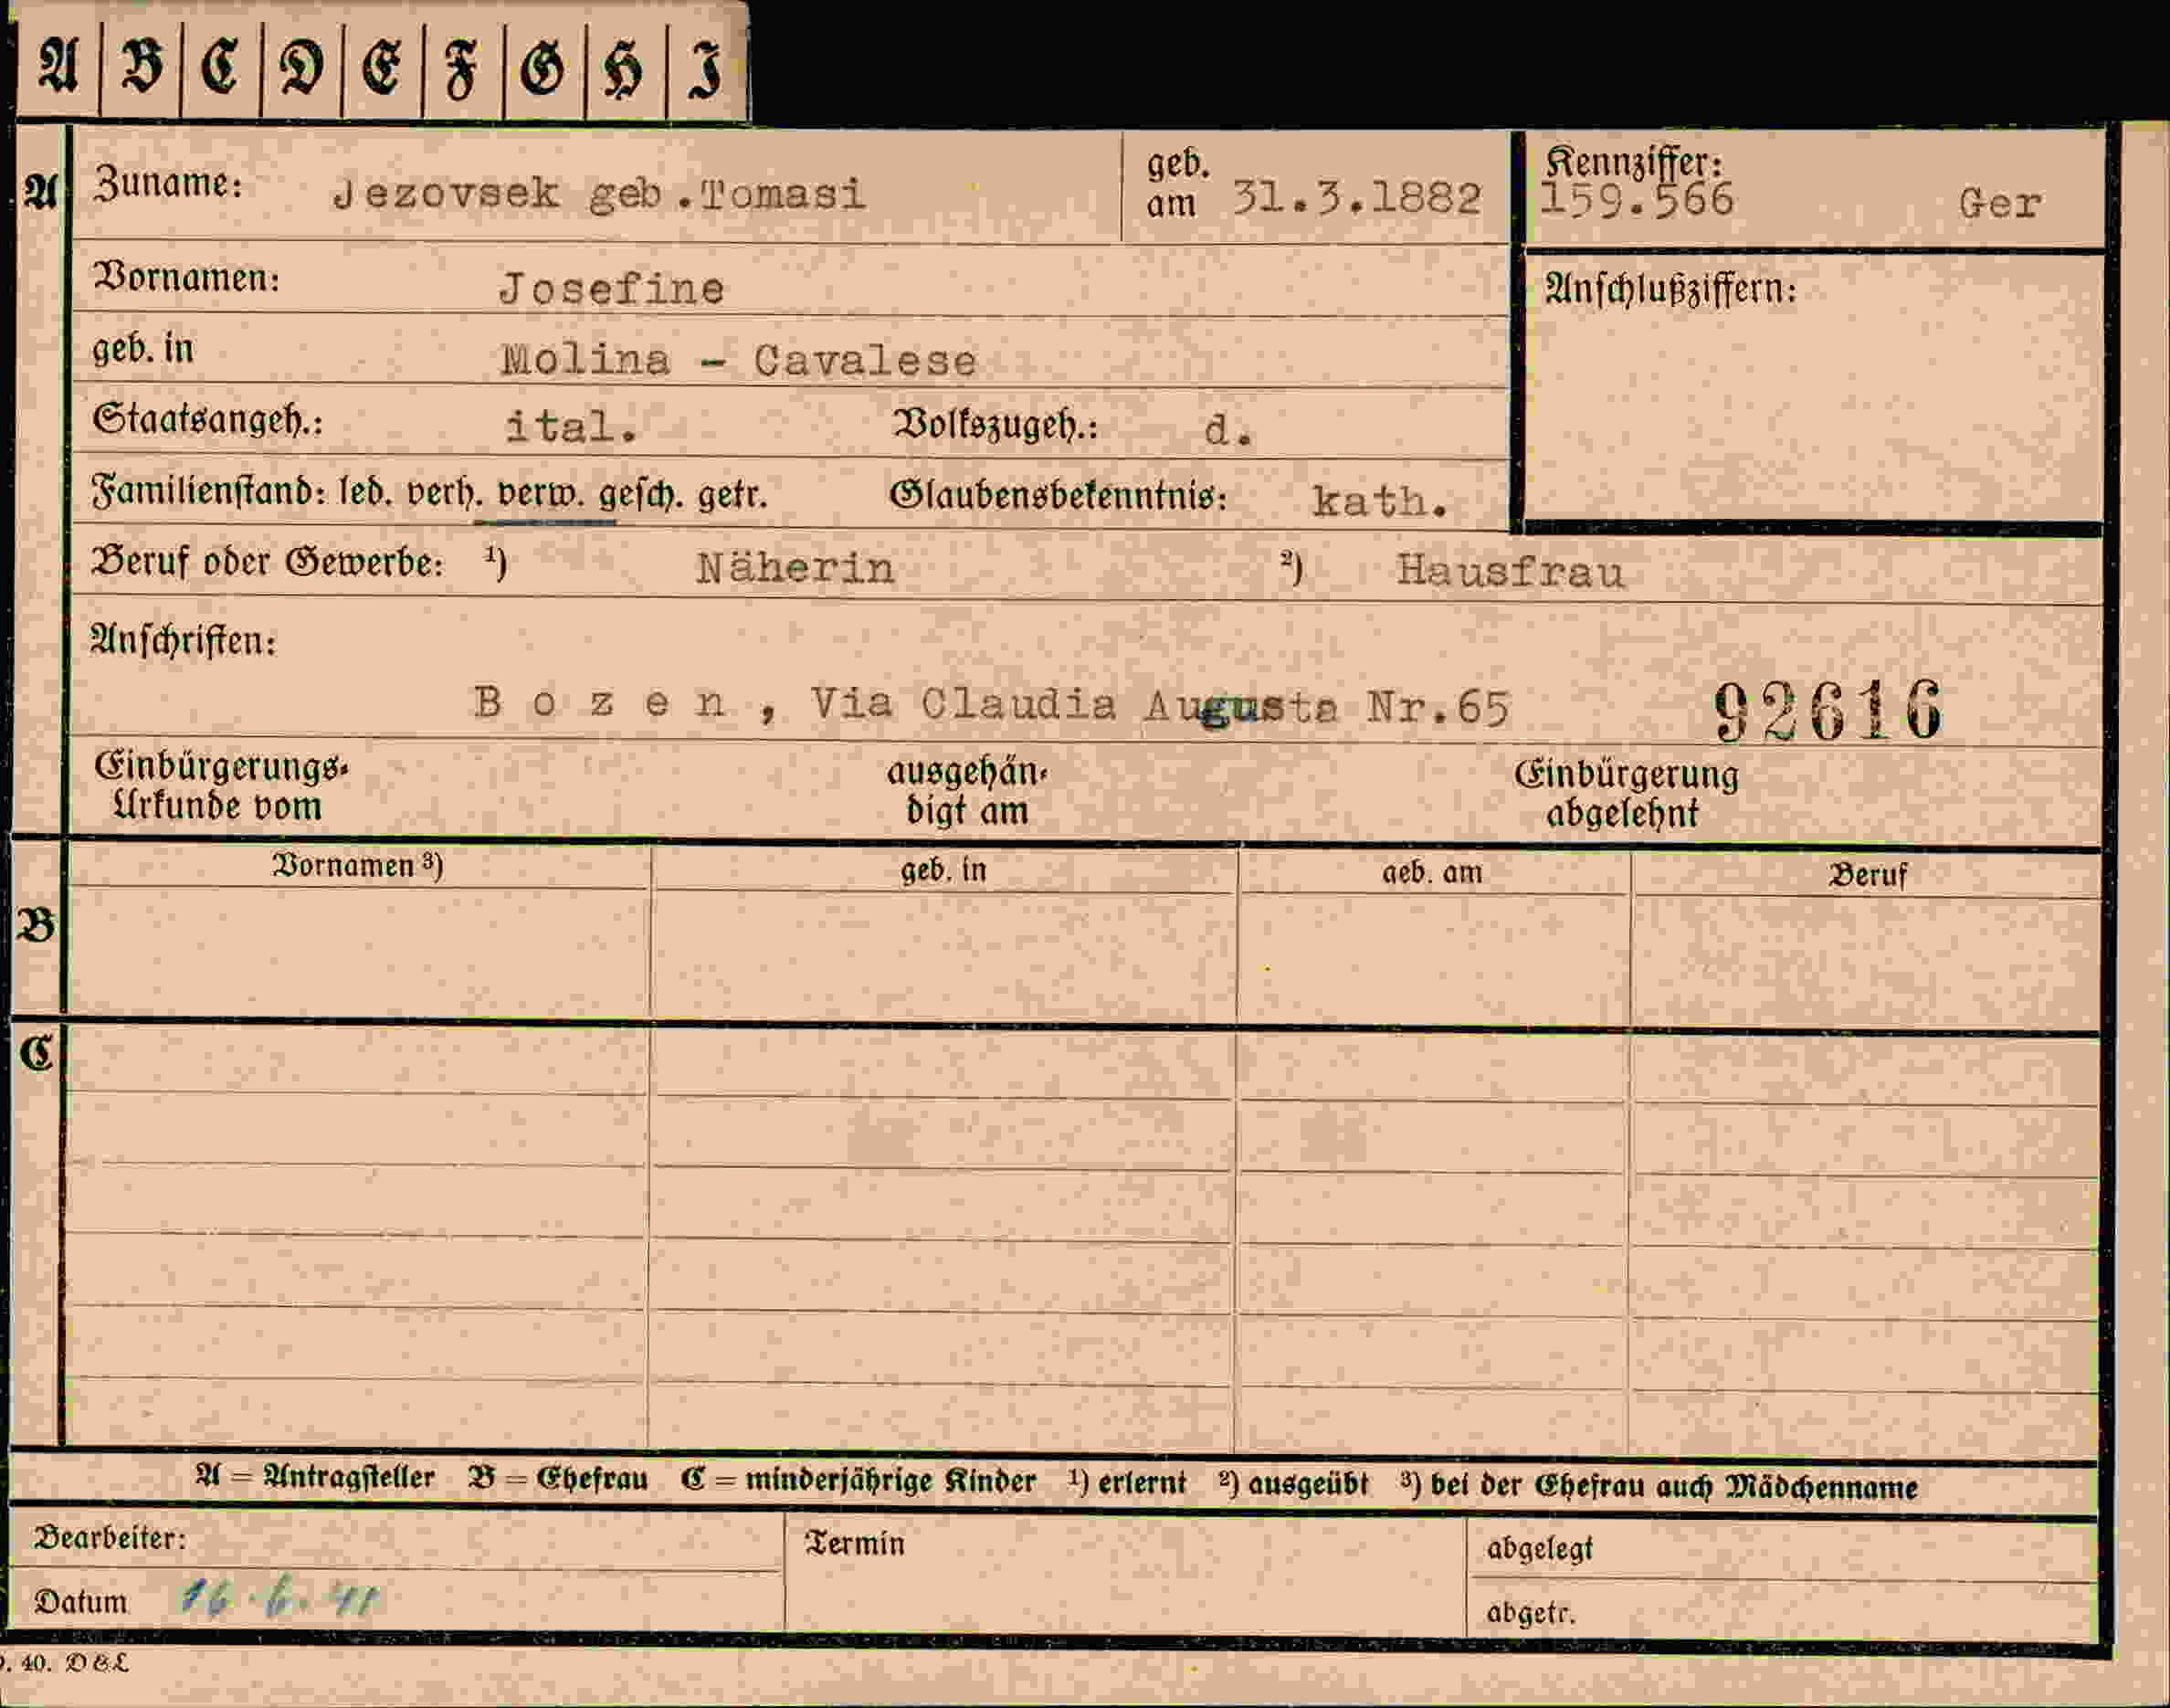 A B C D E F G H I
A Zuname: Jezovsek geb.Tomasi geb. am 31.3.1882 Kennziffer: 159.566 Ger
Vornamen: Josefine Anschlußziffern:
geb. in Molina - Cavalese
Staatsangeh.: ital. Volkszugeh.: d.
Familienstand: led. verh. verw. gesch. getr. Glaubensbekenntnis: kath.
Beruf oder Gewerbe: ¹) Näherin ²) Hausfrau
Anschriften:
Bozen, Via Claudia Augusta Nr.65 92616
Einbürgerungs- ausgehän- Einbürgerung
Urkunde vom digt am abgelehnt
Vornamen ³) geb. in geb. am Beruf
B
C
A = Antragsteller B = Ehefrau C = minderjährige Kinder ¹) erlernt ²) ausgeübt ³) bei der Ehefrau auch Mädchenname
Bearbeiter: Termin abgelegt
Datum 16.6.41 abgetr.
. 40. D&L